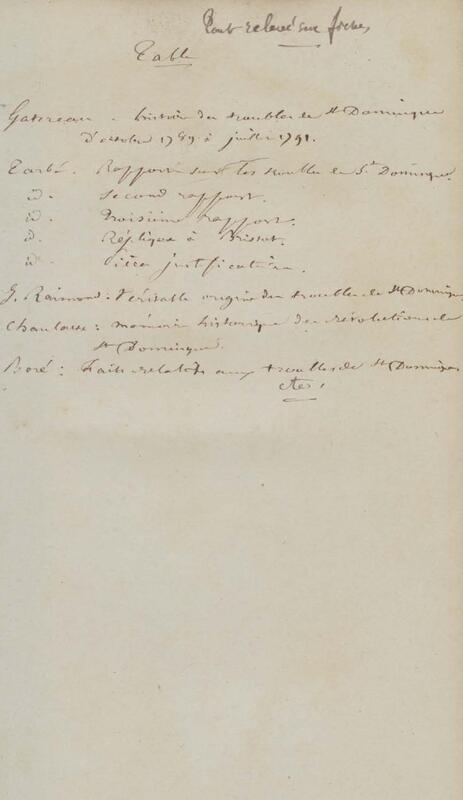 Tout relevé sur fiches
Table
Gatereau - histoire des troubles de St Domingue
d'octobre 1789 à juillet 1791.
Tarbé. Rapport sur les troubles de St Domingue.
id. Second rapport.
id. Troisième rapport.
id. Réplique à Brissot.
id. Pièces justificatives.
J. Raimond : Véritable origine des troubles de St Domingue
Chanlasse : mémoire historique des révolutions de
St Domingue.
Boré : Faits relatifs aux troubles de St Domingue
etc.